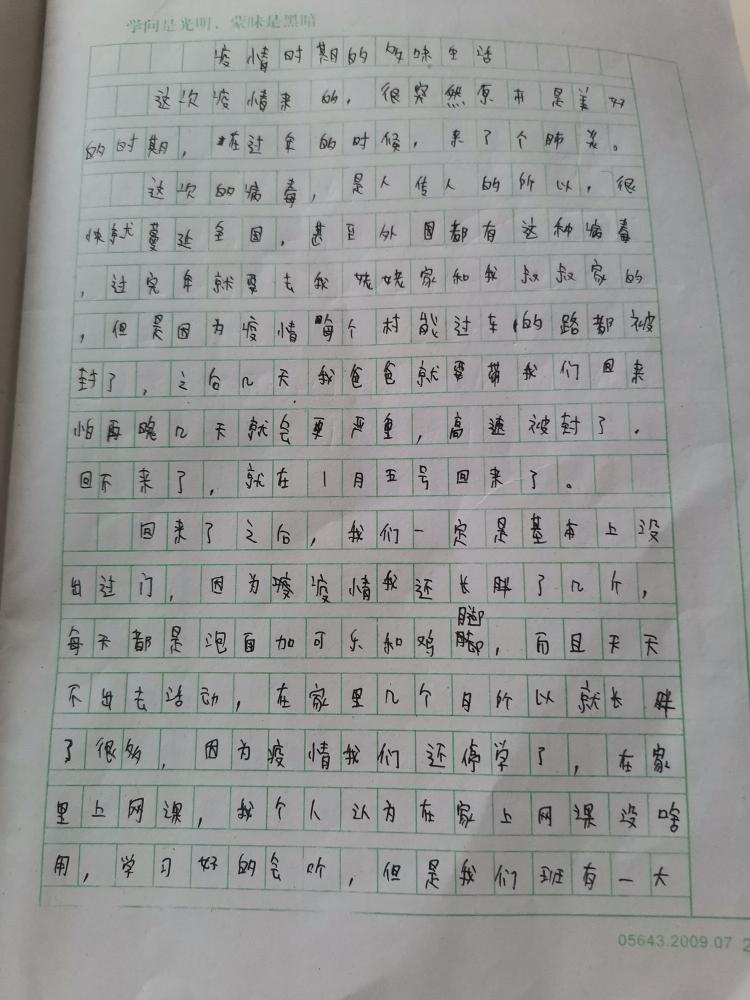 学问是光明，蒙昧是黑暗
疫情时期的多味生活
这次疫情来的，很突然原本是美好
的时期，在过年的时候，来了个肺炎。
这次的病毒，是人传人的所以，很
快就蔓延全国，甚至外国都有这种病毒
，过完年就要去我姥姥家和我叔叔家的
，但是因为疫情每个村能过车的路都被
封了，之后几天我爸爸就要带我们回来
怕再晚几天就会更严重，高速被封了。
回不来了，就在1月五号回来了。
回来了之后，我们一定是基本上没
出过门，因为疫情我还长胖了几个，
每天都是泡面加可乐和鸡脚，而且天天
不出去活动，在家里几个月所以就长胖
了很多，因为疫情我们还停学了，在家
里上网课，我个人认为在家上网课没啥
用，学习好的会听，但是我们班有一大
05643.2009.07